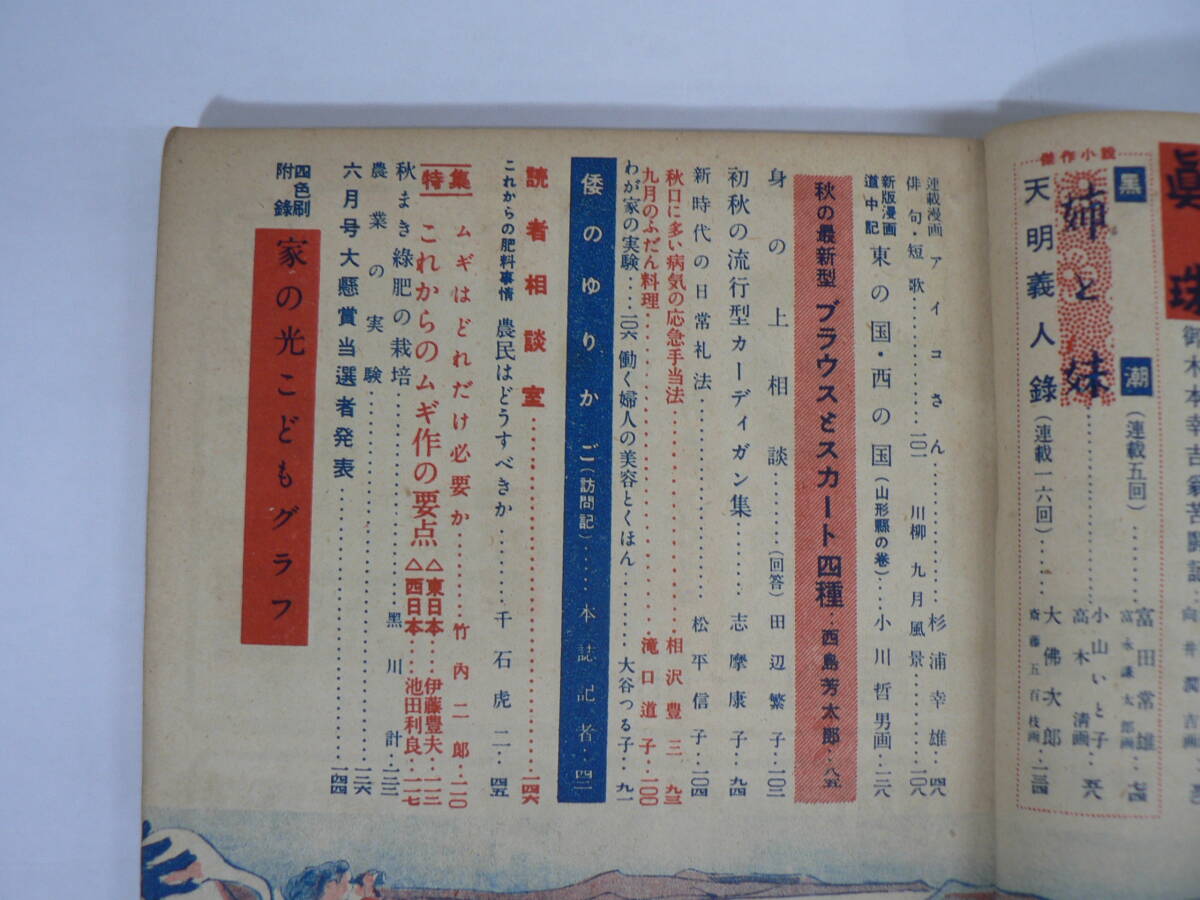 眞珠
御木本幸吉翁苦闘記
向井潤吉画
傑作小説
黒潮(連載五回)……富田常雄…七四
富永謙太郎画
姉と妹……小山いと子…五八
高木清画
天明義人錄(連載一六回)……大佛次郎…一三四
斎藤五百枝画
連載漫画 アイコさん……杉浦幸雄…四八
俳句・短歌……一〇一 川柳 九月風景……一〇八
新版漫画道中記 東の国・西の国(山形縣の巻)……小川哲男画…二八
秋の最新型 ブラウスとスカート四種…西島芳太郎…八五
身の上相談……(回答)田辺繁子…一〇二
初秋の流行型カーディガン集……志摩康子…九四
新時代の日常礼法……松平信子…一〇四
秋口に多い病気の応急手当法……相沢豊三…九三
九月のふだん料理……滝口道子…一〇〇
わが家の実験……一〇六 働く婦人の美容とくほん……大谷つる子…九一
倭のゆりかご(訪問記)……本誌記者…四二
読者相談室……一四六
これからの肥料事情 農民はどうすべきか……千石虎二…四五
特集 ムギはどれだけ必要か……竹内二郎…一一〇
これからのムギ作の要点 △東日本……伊藤豊夫…一一二
△西日本……池田利良…一一七
秋まき綠肥の栽培……黒川計…一二三
農業の実験……一二六
六月号大懸賞当選者発表……一四四
四色刷附錄 家の光こどもグラフ